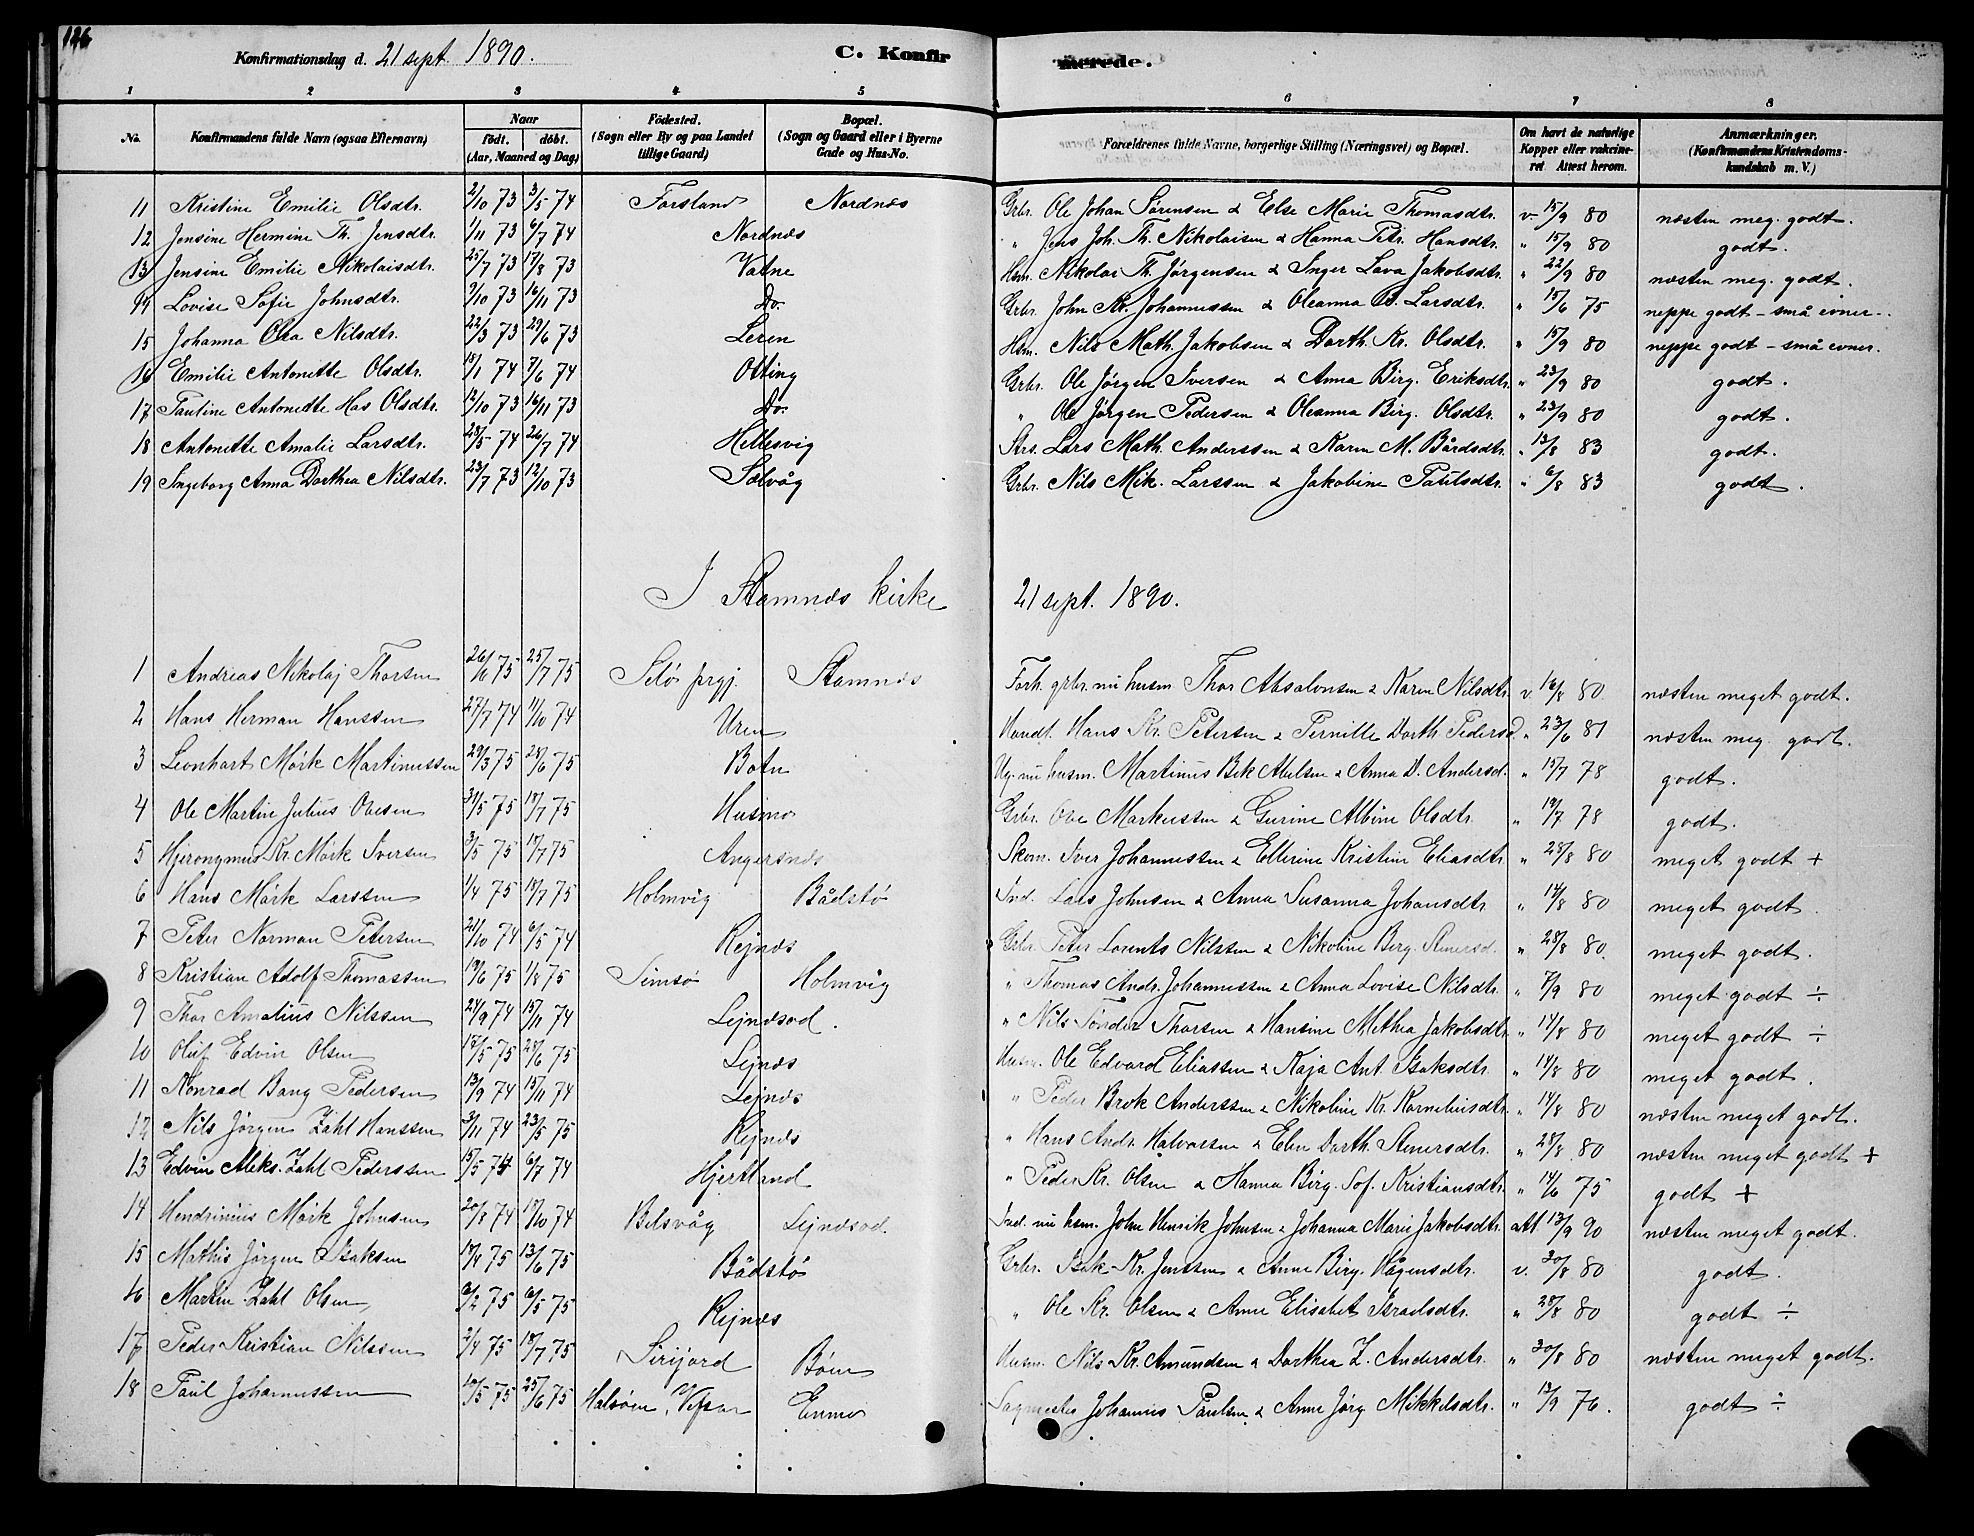 126
Konfirmationsdag d. 21 sept. 1890. C. Konfirmerede.
1 2 3 4 5 6 7 8
No. Konfirmandens fulde Navn (ogsaa Efternavn) Naar født. døbt. (Aar, Maaned og Dag) Fødested. (Sogn eller By og paa Landet tillige Gaard) Bopæl. (Sogn og Gaard eller i Byerne Gade og Hus-No. Forældrenes fulde Navne, borgerlige Stilling (Næringsvei) og Bopæl. Om havt de naturlige Kopper eller vaksineret Attest herom. Anmærkninger. (Konfirmandens Kristendomskundskab m. V.)
11 Kristine Emilie Olsdtr. 2/10 73 3/5 74 Forsland Nordnes Grbr. Ole Johan Sørensen & Else Marie Thomasdtr. v. 15/9 80 næsten meg. godt.
12 Jensine Hermine Th. Jensdtr. 1/11 73 6/7 74 Nordnes " Jens Joh. Th. Nikolaisen & Hanna Petr. Hansdtr. " 15/9 80 godt.
13 Jensine Emilie Nikolaisdtr. 25/7 73 17/8 73 Vatne Hsm. Nikolai Th. Jørgensen & Inger Lava Jakobsdtr. " 22/9 80 næsten meg. godt.
14 Lovise Sofie Johnsdtr. 9/10 73 16/11 73 Do. Grbr. John Kr. Johannessen & Oleanna B. Larsdtr. " 15/6 75 neppe godt - små evner.
15 Johanna Olea Nilsdtr. 22/3 73 29/6 73 Leren Hsm. Nils Math. Jakobsen & Dorth. Kr. Olsdtr. " 15/9 80 neppe godt - små evner.
16 Emilie Antonette Olsdtr. 18/1 74 7/6 74 Otting Grbr. Ole Jørgen Iversen & Anna Birg. Eriksdtr. " 23/9 80 godt.
17 Pauline Antonette Has Olsdtr. 12/10 73 16/11 73 Do. " Ole Jørgen Pedersen & Oleanna Birg. Olsdtr. " 23/9 80 godt.
18 Antonette Amalie Larsdtr. 28/5 74 26/7 74 Hellesvig Strs. Lars Math. Anderssen & Karen M. Bårdsdtr. " 13/8 83 godt.
19 Ingeborg Anna Dorthea Nilsdtr. 23/7 73 12/10 73 Sølvåg Grbr. Nils Mik. Larssen & Jakobine Paulsdtr. " 6/8 83 godt.
I Stamnes kirke 21 sept. 1890.
1 Andreas Nikolaj Thorsen 26/6 75 25/7 75 Selø prgj. Stamnes Forh. grbr. nu husm. Thor Absalonsen & Karen Nilsdtr. v. 16/8 80 næsten meget godt.
2 Hans Herman Hanssen 27/7 74 11/10 74 Uren Handl. Hans Kr. Petersen & Pernille Dorth. Pedersd. " 23/6 81 næsten meg. godt.
3 Leonhart Mörk Martinussen 29/3 75 28/6 75 Botn Ug. nu husm. Martinus Bek Abelsen & Anna D. Andersd. " 15/7 78 godt.
4 Ole Martin Julius Ovesen 31/5 75 18/7 75 Husmo Grbr. Ove Markussen & Gurine Albine Olsdtr. " 19/7 78 godt.
5 Hjeronymus Kr. Mörk Iversen 3/5 75 18/7 75 Angersnes Skom. Iver Johannessen & Ellerine Kristine Eliasdtr. " 28/8 80 meget godt +
6 Hans Mörk Larssen 1/4 75 18/7 75 Holmvig Bådstø Ind. Lars Johnsen & Anna Susanna Johansdtr. " 14/8 80 meget godt.
7 Peter Norman Petersen 21/10 74 6/5 74 Rejnes Grbr. Peter Lorents Nilssen & Nikoline Berg. Stenersd. " 28/8 80. meget godt.
8 Kristian Adolf Thomassen 19/6 75 1/8 75 Simsø Holmvig " Thomas Andr. Johannessen & Anna Lovise Nilsdtr. " 7/9 80 meget godt ÷
9 Thor Amatius Nilssen 24/9 74 15/11 74 Lejndsod. " Nils Tønder Thorsen & Hansine Methea Jakobsdtr. " 14/8 80 meget godt ÷
10 Oluf Edvin Olsen 17/5 75 28/6 75 Lejnes Husm. Ole Edvard Eliassen & Kaja Ant. Isaksdtr. " 14/8 80 meget godt.
11 Konrad Bang Pedersen 13/9 74 15/11 74 Lejnes " Peder Brok Anderssen & Nikoline Kr. Korneliusdtr. " 14/8 80 næsten meget godt.
12 Nils Jørgen Zahl Hanssen 3/11 74 23/5 75 Rejnes " Hans Andr. Halvorsen & Elen Dorth. Stenersdtr. " 28/8 80 næsten meget godt +
13 Edvin Aleks. Zahl Pederssen 15/5 74 6/7 74 Hjertland " Peder Kr. Olsen & Hanna Birg. Sof. Kristiansdtr. " 14/6 75 godt +
14 Hendrinius Mörk Johnsen 20/8 74 18/10 74 Belsvåg Lejndsod. Ind. nu hsm. John Henrik Johnsen & Johanna Marie Jakobsdtr. att 13/9 90 næsten meget godt.
15 Mathis Jørgen Isaksen 18/4 75 13/6 75 Bådstø Grbr. Isak Kr. Jenssen & Anne Birg. Hågensdtr. v. 30/8 80 godt.
16 Martin Zahl Olsen 6/2 75 6/5 75 Rejnes " Ole Kr. Olsen & Anne Elisabet Israelsdtr. " 28/8 80 godt ÷
17 Peder Kristian Nilssen 2/4 75 18/7 75 Sirijord Bøen Husm. Nils Kr. Amundsen & Dorthea Z. Andersdtr. " 30/8 80 næsten meget godt.
18 Paul Johannessen 10/5 75 25/6 75 Halsøen, Vefsen Enmo Sagmester Johannes Paulsen & Anne Jørg. Mikkelsdtr. " 13/9 76. godt ÷